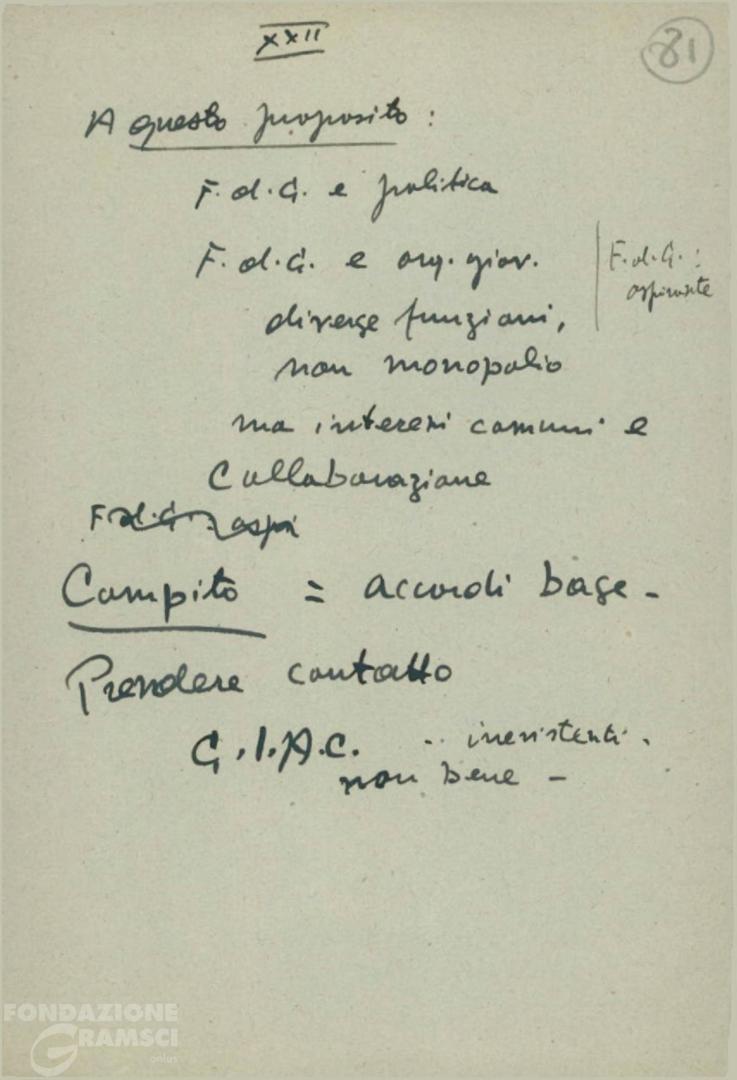 XXII
81
A questo proposito:
F.d.G. e politica
F.d.G. e org. giov.
F.d.G.:
diverse funzioni,
non monopolio
ma interessi comuni e
Collaborazione
F.d.G.
Compito = accordi base -
Prendere contatto
G.I.A.C. .. inesistenti.
non bene -
FONDAZIONE
GRAMSCI
onlus